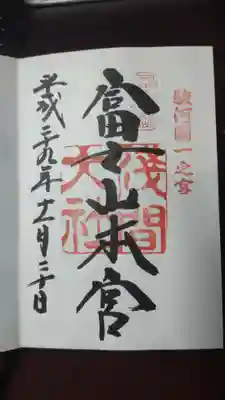 駿河國一之宮
富士山本宮
浅間
大社
平成二十九年十一月二十日